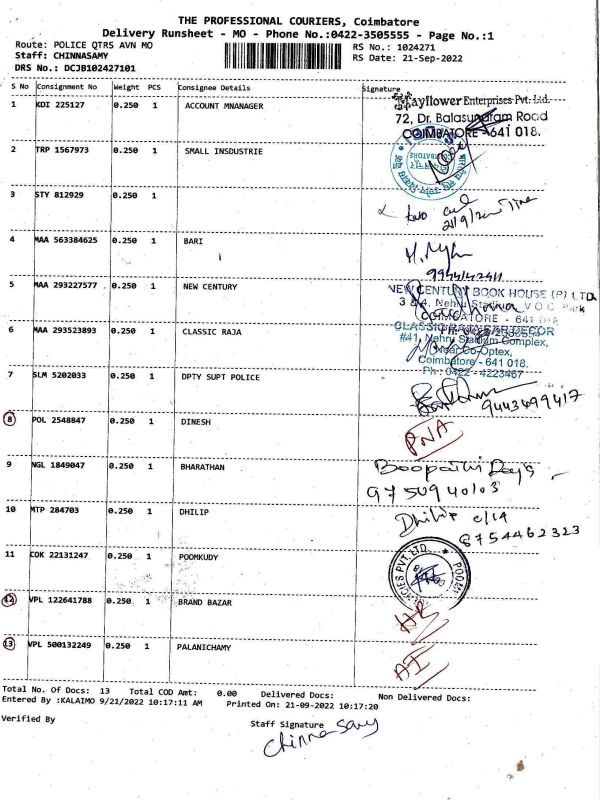 THE PROFESSIONAL COURIERS, Coimbatore
Delivery Runsheet - MO - Phone No.:0422-3505555 - Page No.:1
Route: POLICE QTRS AVN MO
RS No.: 1024271
Staff: CHINNASAMY
RS Date: 21-Sep-2022
DRS No.: DCJB102427101
S No Consignment No Weight PCS Consignee Details Signature
1 KDI 225127 0.250 1 ACCOUNT MNANAGER
Mayflower Enterprises Pvt. Ltd.
72, Dr. Balasundram Road
COIMBATORE - 641 018.
2 TRP 1567973 0.250 1 SMALL INSDUSTRIE
3 STY 812929 0.250 1
4 MAA 563384625 0.250 1 BARI
5 MAA 293227577 0.250 1 NEW CENTURY
NEW CENTURY BOOK HOUSE (P) LTD
3 & 4, Nehru Stadium, V O C Park
COIMBATORE - 641 018
6 MAA 293523893 0.250 1 CLASSIC RAJA
#41, Nehru Stadium Complex,
Near Co-Optex,
Coimbatore - 641 018.
Ph : 0422 - 4223467
7 SLM 5202033 0.250 1 DPTY SUPT POLICE
9443499417
8 POL 2548847 0.250 1 DINESH
PNA
9 NGL 1849047 0.250 1 BHARATHAN
9750940103
10 MTP 284703 0.250 1 DHILIP
Dhilip
8754462323
11 COK 22131247 0.250 1 POOMKUDY
12 VPL 122641788 0.250 1 BRAND BAZAR
13 VPL 500132249 0.250 1 PALANICHAMY
Total No. Of Docs: 13 Total COD Amt: 0.00 Delivered Docs: Non Delivered Docs:
Entered By :KALAIMO 9/21/2022 10:17:11 AM Printed On: 21-09-2022 10:17:20
Verified By
Staff Signature
Chinnasamy